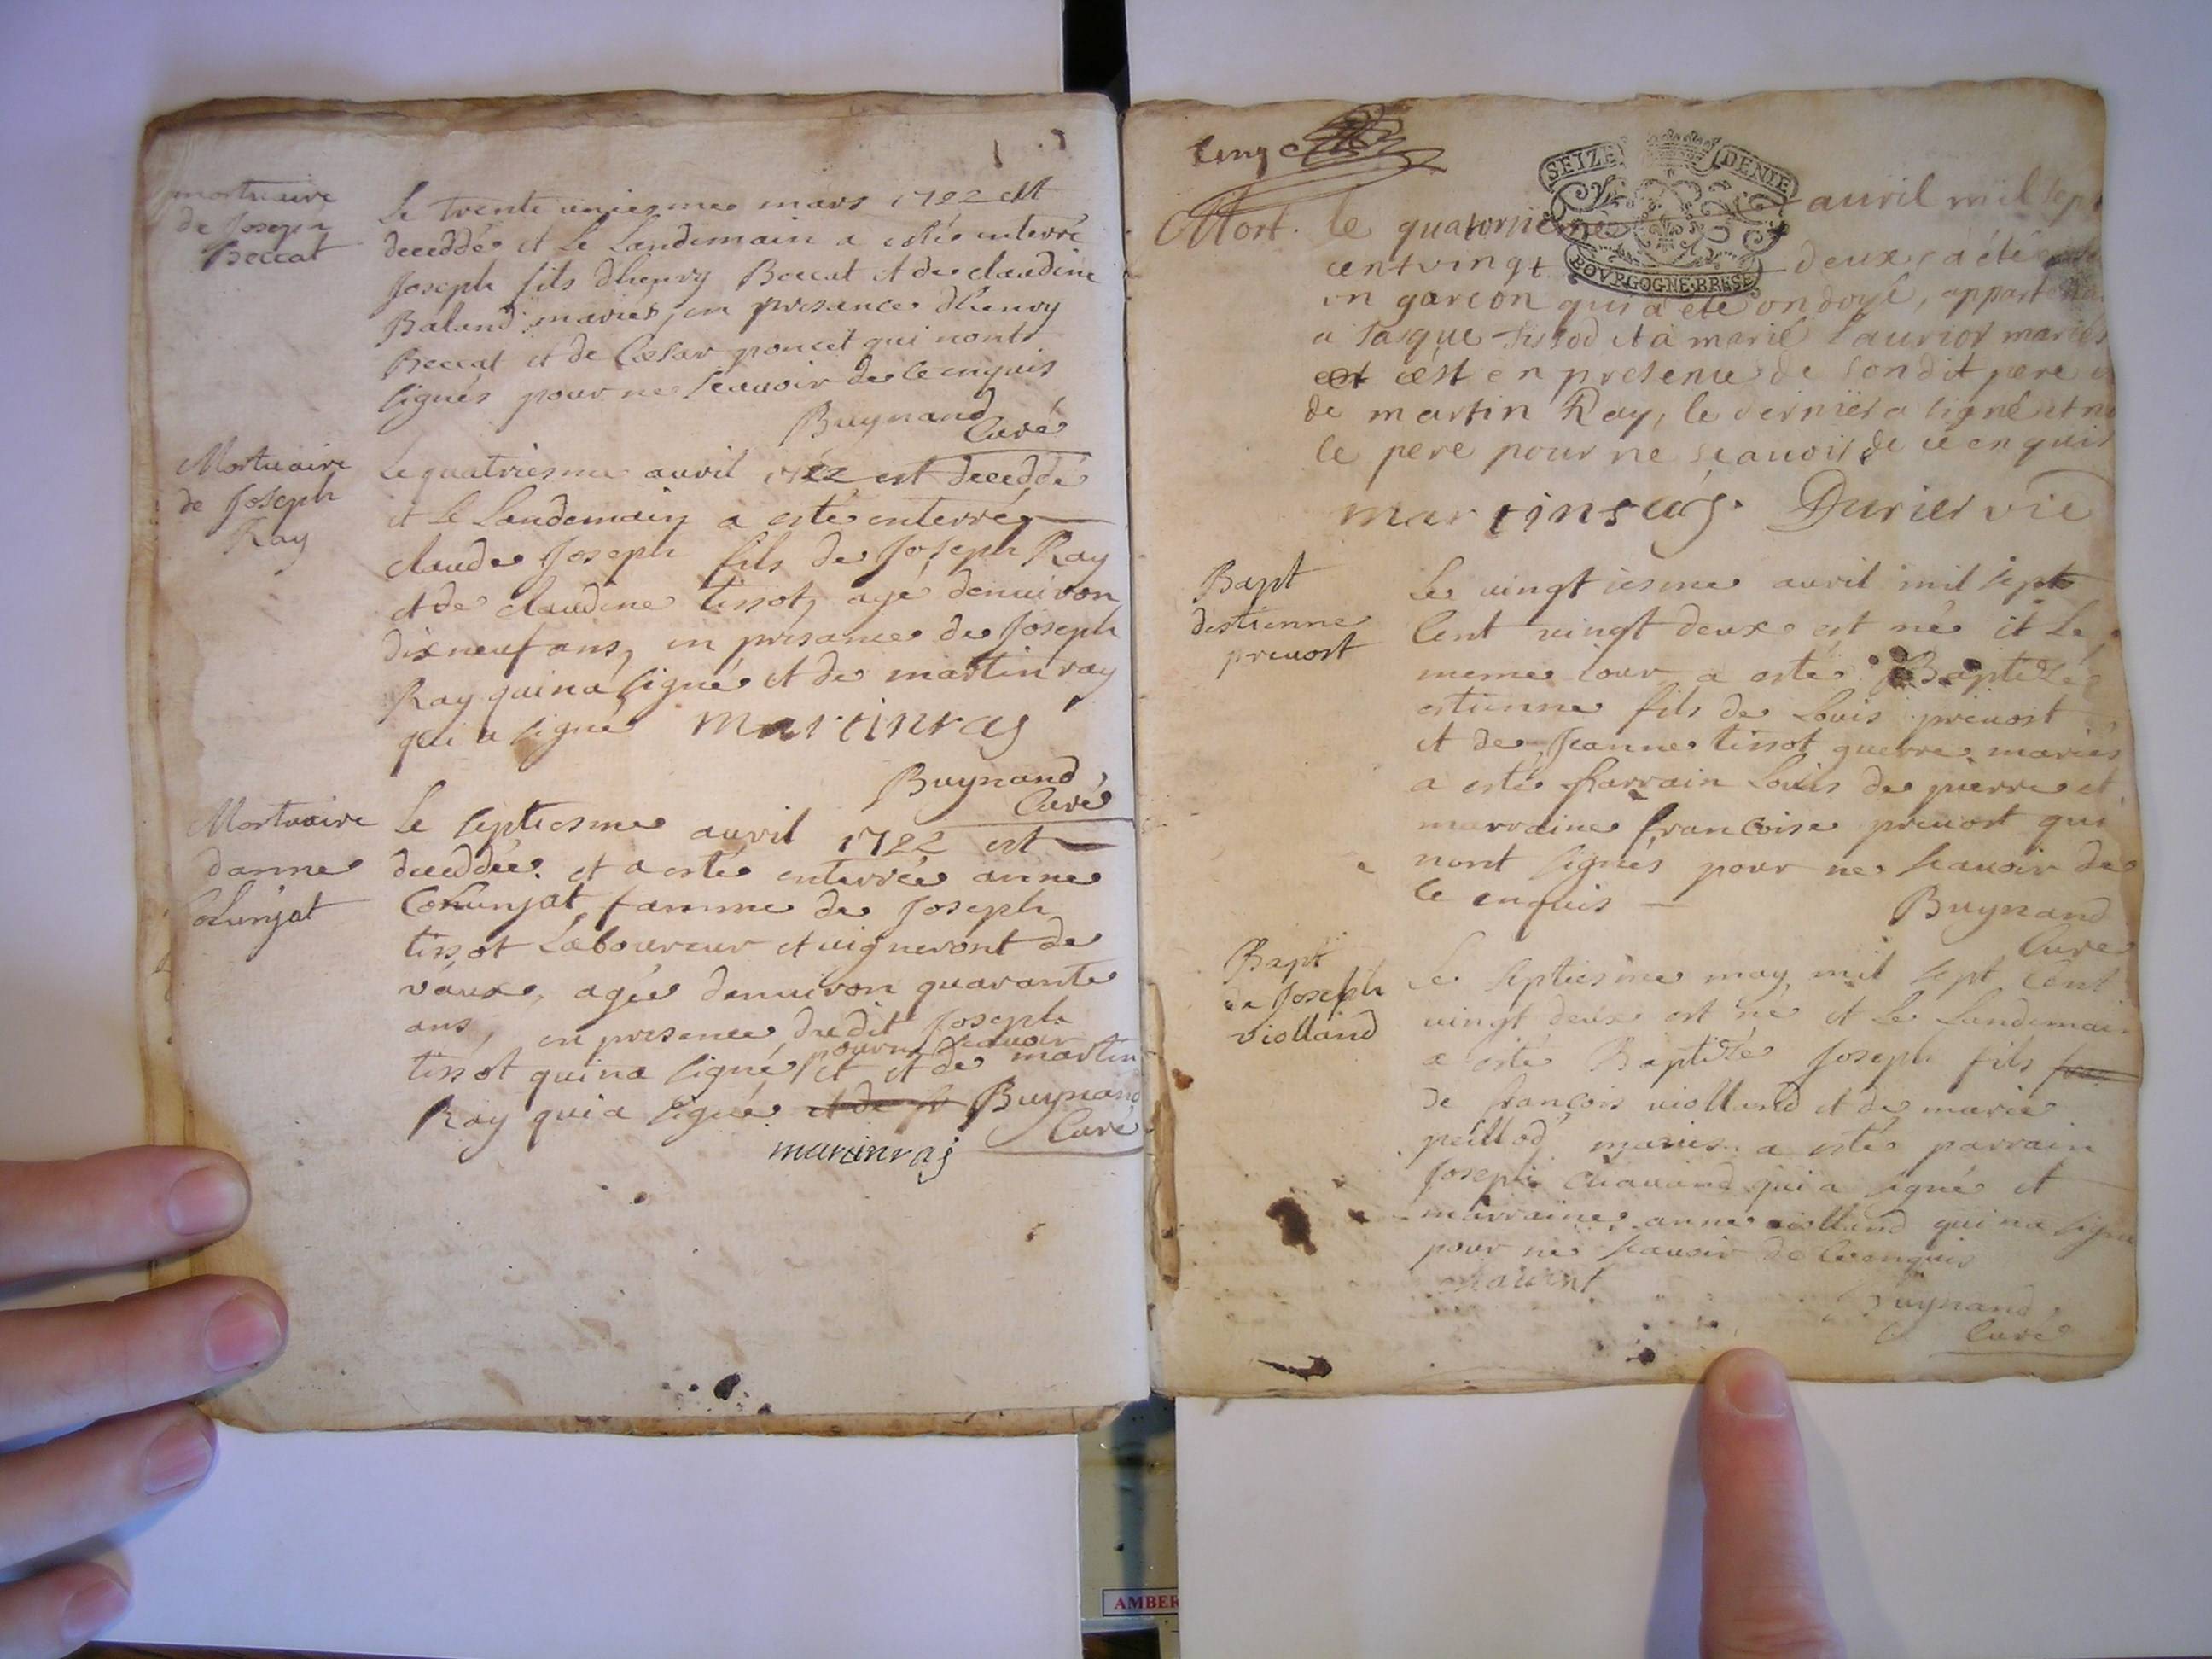 mortuaire
de Joseph
Beccat
Le trente uniesme mars 1722 est
deceddé et le Landemain a esté enterré
Joseph fils dhenry Beccat et de claudine
Baland mariés, en presance dhenry
Beccat et de Cæsar poncet qui nont
signés pour ne scauoir de ce enquis
Buynand
Curé
Mortuaire
de Joseph
Ray
Le quatriesme auril 1722 est deceddé
et le Landemain a esté enterré
claude Joseph fils de Joseph Ray
et de claudine tissot, agé denuiron
dixneuf ans, en presance de Joseph
Ray qui na signé et de martin ray
qui a signé martinray
Buynand
Curé
Mortuaire
danne
Le septiesme auril 1722 est
deceddée et a esté enterrée anne
famme de Joseph
tissot Laboureur et uigneront de
vaux, agée denuiron quarante
ans, en presence dudit Joseph
pour ne scauoir
tissot qui na signé et et de martin
Ray qui a signé et de Buynand
Curé
martinraj
cinq
SEIZE DENIE
BOVRGOGNE·BRESSE
Mort. le quatornieme auril mil sept
cent vingt deux, a été
un garcon qui a été ondoyé,
a Jasque tissod et a marie Laurior mariés
est cest en presence de son dit pere et
de martin Ray, le dernier a signé et no
le pere pour ne scauoir de ce enquis
martinray. Durier vic
Bapt
destienne
preuost
Le uingtiesme auril mil sept
Cent uingt deux est né et Le
meme iour a esté Baptizé
estienne fils de Louis preuost
et de Jeanne tissot guerre mariés
a esté parrain Louis de pierre et
marraine francoise preuost qui
nont signés pour ne scauoir de
ce enquis
Buynand
Curé
Bapt
de Joseph
violland
Le septiesme may mil sept Cent
uingt deux est né et Le Landemain
a esté Baptizé Joseph fils
de françois uiolland et de marie
peillod mariés a esté parrain
Joseph chauand qui a signé et
marraine anne uiolland qui na signé
pour ne scauoir de ce enquis
chauent
Buynand
Curé
AMBER